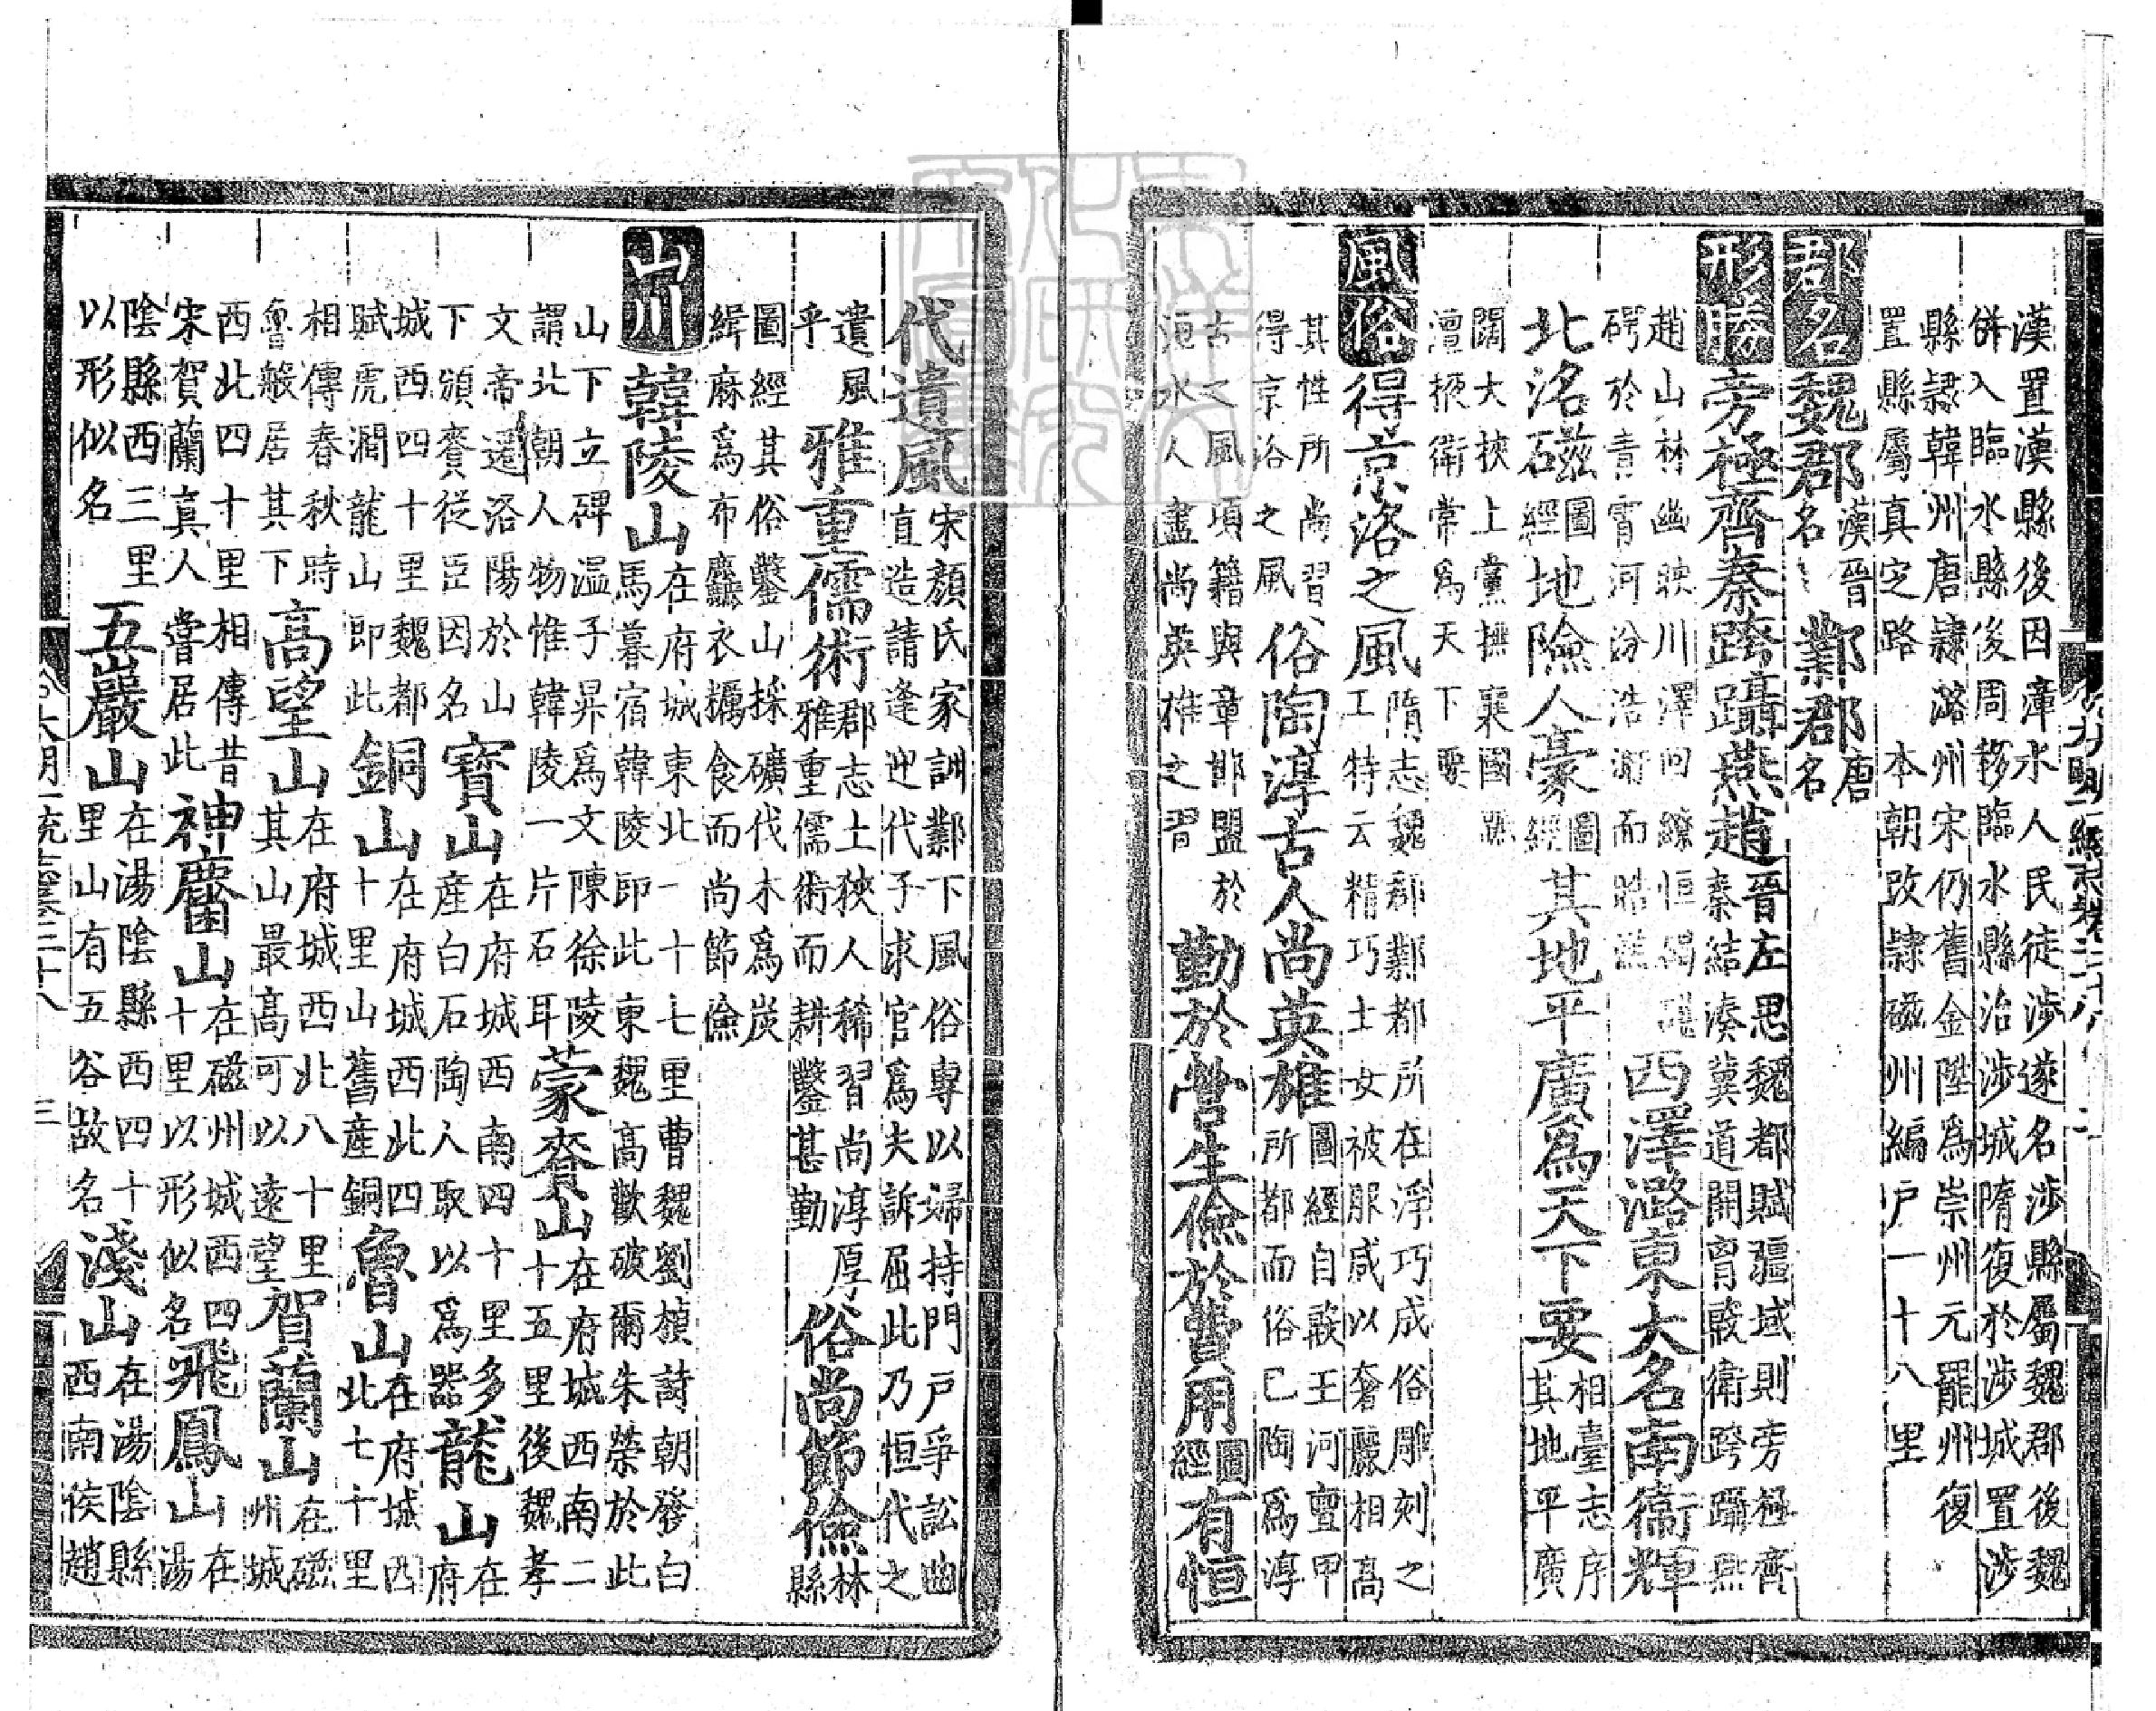 漢置漢縣後因漳水人民徙涉遂名涉縣屬魏郡後魏
併入臨水縣後周移臨水縣治涉城隋復於涉城置涉
縣隸韓州唐隸潞州宋仍舊金陞為崇州元罷州復
置縣屬真定路 本朝改隸磁州編户一十八里
郡名 魏郡漢晉名 鄴郡唐名
形勝 旁極齊秦跨躡燕趙晉左思魏都賦疆域則旁極齊秦結湊冀道開胷殷衛跨躡燕
趙山林幽映川澤回繚恒碣碪碍於青霄河汾浩涆而皓溔 西澤潞東大名南衛輝
北洺磁圖經 地險人豪圖經 其地平廣爲天下要相臺志序其地平廣
闊大挾上黨撫襄國蹠澶掖衛常爲天下要
風俗 得京洛之風隋志魏郡鄴都所在浮巧成俗雕刻之工特云精巧士女被服咸以奢麗相高
其性所尚習得京洛之風 俗陶淳古人尚英雄圖經自王河亶甲所都而俗已陶爲淳
古之風項籍與章邯盟於洹水人盡尚英雄之習 勤於營生儉於費用圖經 有恒
代遺風宋顏氏家訓鄴下風俗專以婦持門户爭訟曲直造請逢迎代子求官爲夫訴屈此乃恒代之
遺風乎 雅重儒術郡志土狹人稀習尚淳厚雅重儒術而耕鑿甚勤 俗尚節儉林縣
圖經其俗鑿山採礦伐木爲炭緝麻爲布麤衣糲食而尚節儉
山川 韓陵山在府城東北一十七里曹魏劉楨詩朝發白馬暮宿韓陵即此東魏高歡破爾朱榮於此
山下立碑溫子昇爲文陳徐陵謂北朝人物惟韓陵一片石耳 蒙賚山在府城西南二十五里後魏孝
文帝遷洛陽於山下頒賚從臣因名 寶山在府城西南四十里多產白石陶人取以爲器 龍山在府
城西四十里魏都賦虎澗龍山即此 銅山在府城西北四十里山舊產銅 魯山在府城西北七十里
相傳春秋時魯般居其下 高望山在府城西北八十里其山最高可以遠望 賀蘭山在磁州城
西北四十里相傳昔宋賀蘭真人嘗居此 神麕山在磁州城西四十里以形似名 飛鳳山在湯
陰縣西三里以形似名 五巖山在湯陰縣西四十里山有五谷故名 淺山在湯陰縣西南侯趙
大明一統志卷二十八 三